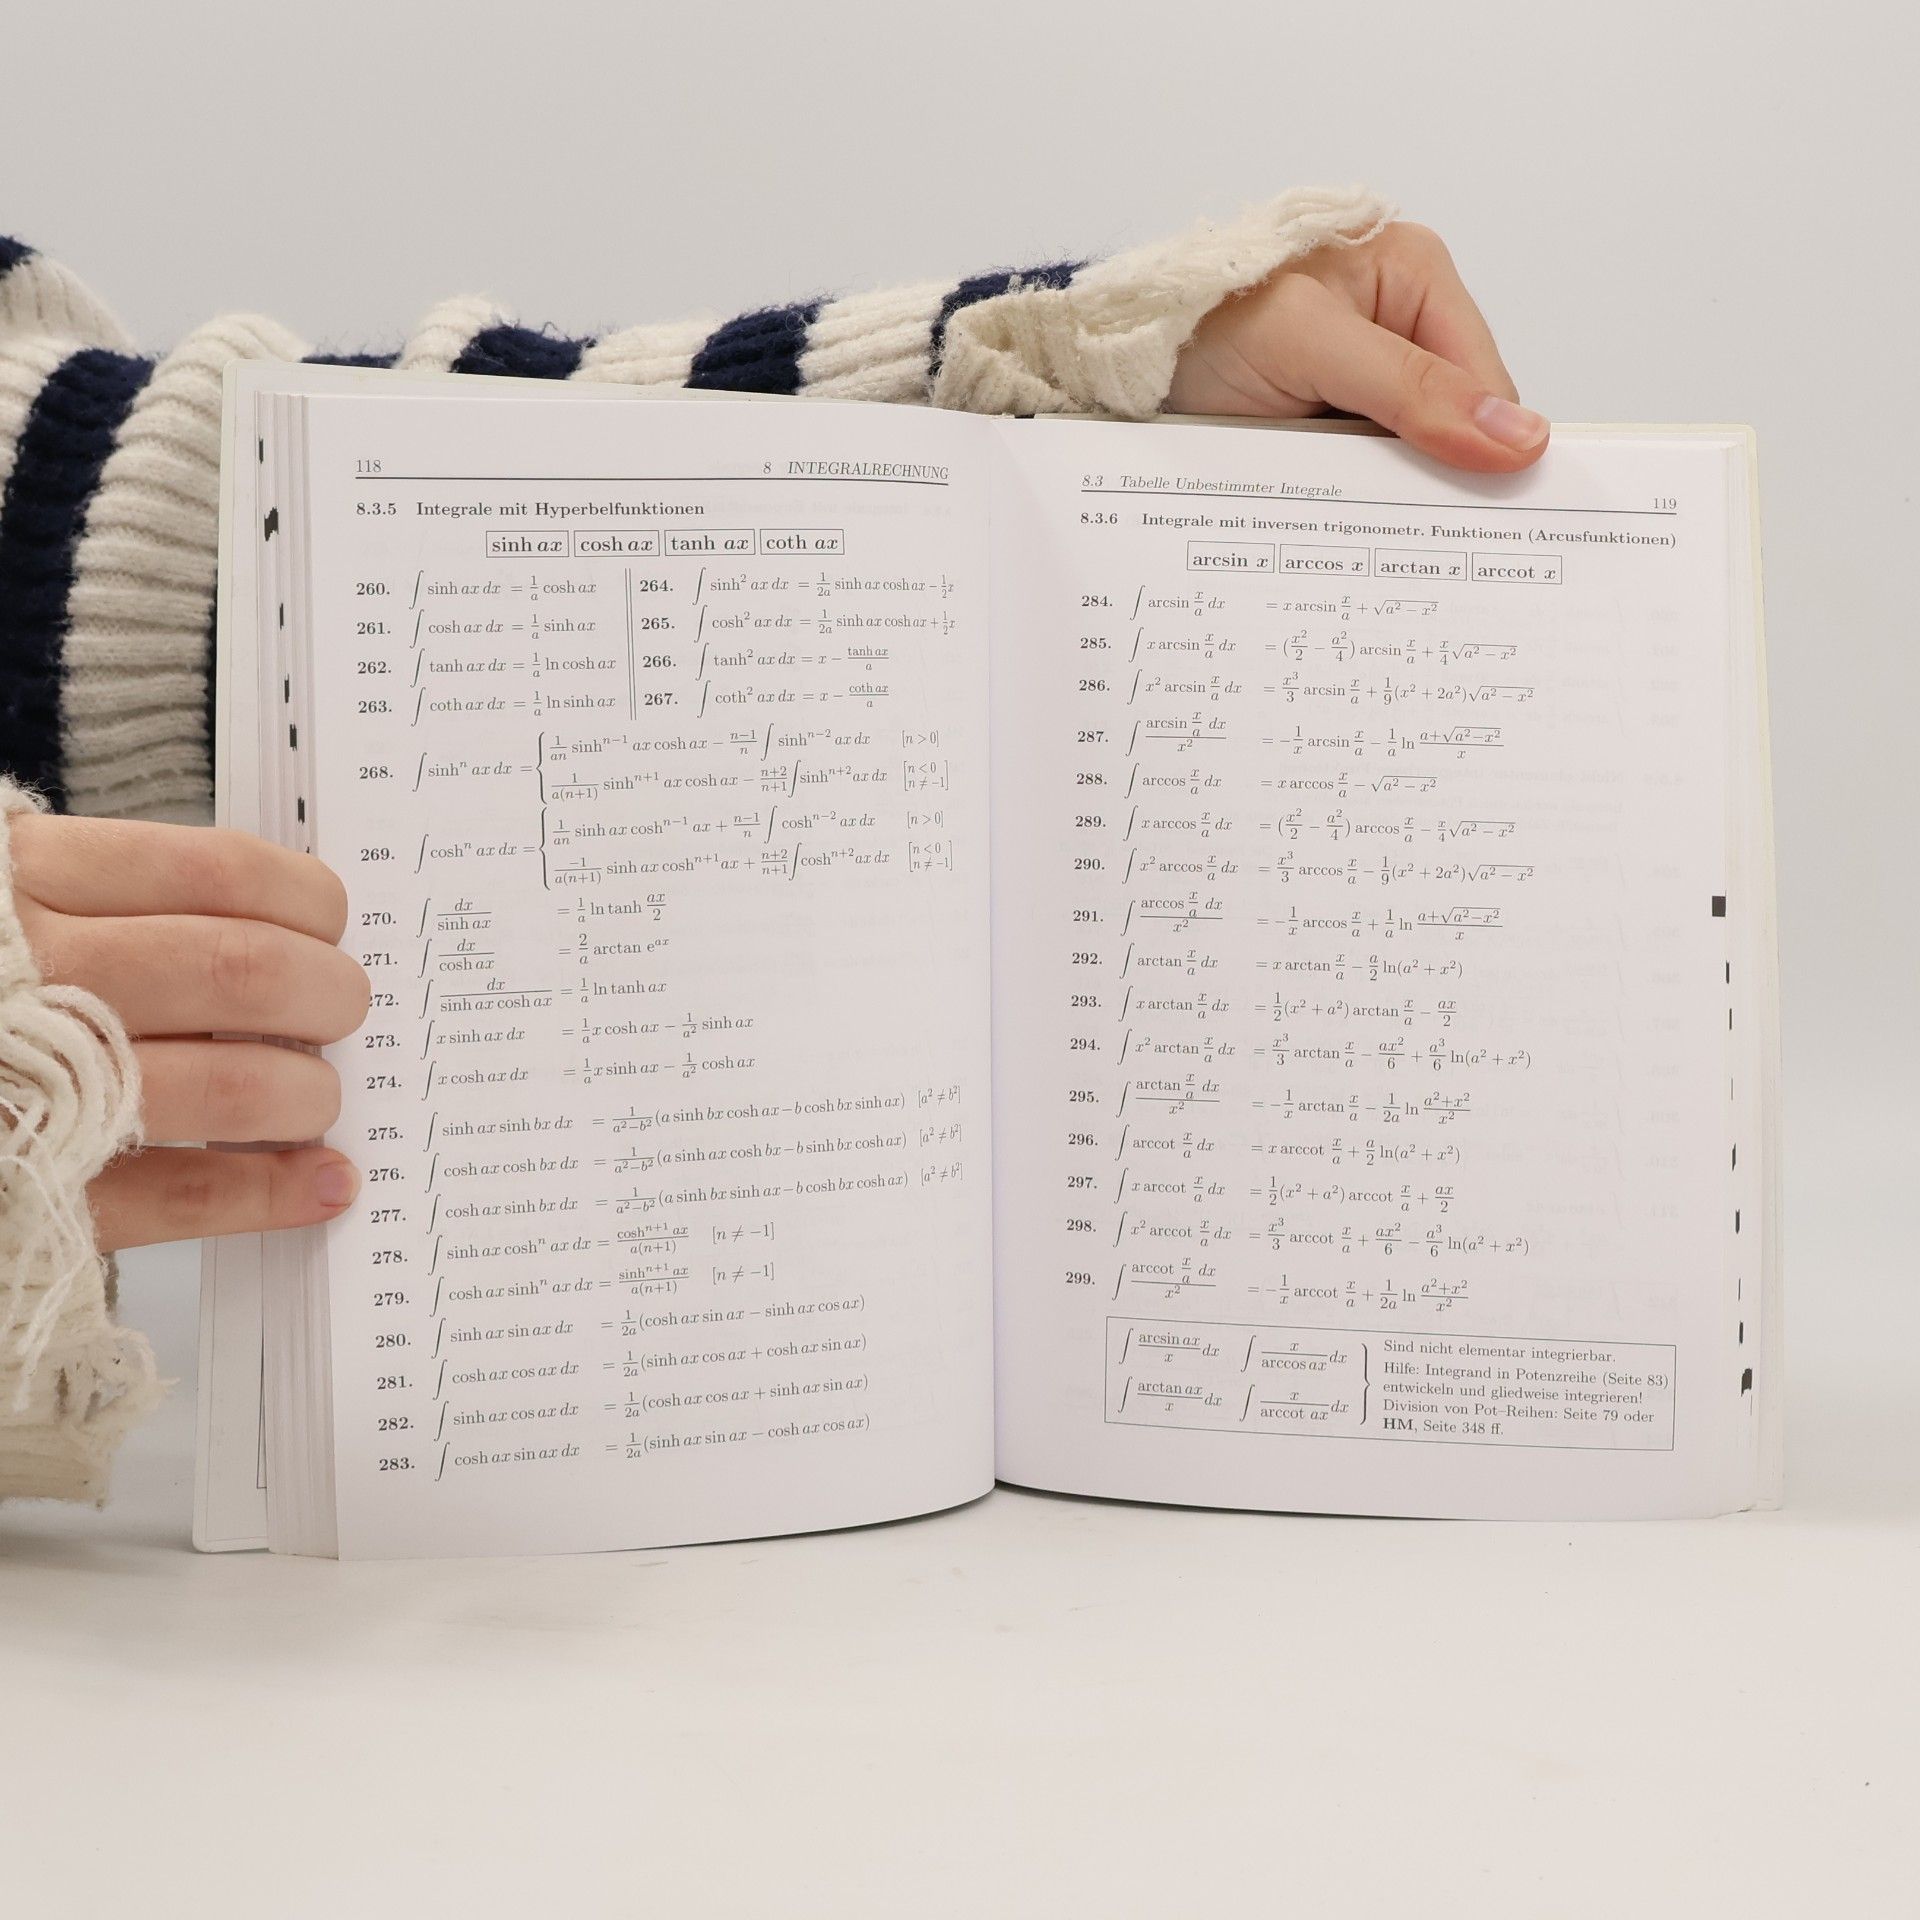 118 8 INTEGRALRECHNUNG
8.3.5 Integrale mit Hyperbelfunktionen
sinh ax cosh ax tanh ax coth ax
260. ∫ sinh ax dx = 1/a cosh ax
264. ∫ sinh² ax dx = 1/2a sinh ax cosh ax − 1/2 x
261. ∫ cosh ax dx = 1/a sinh ax
265. ∫ cosh² ax dx = 1/2a sinh ax cosh ax + 1/2 x
262. ∫ tanh ax dx = 1/a ln cosh ax
266. ∫ tanh² ax dx = x − tanh ax/a
263. ∫ coth ax dx = 1/a ln sinh ax
267. ∫ coth² ax dx = x − coth ax/a
268. ∫ sinhⁿ ax dx = { 1/an sinhⁿ⁻¹ ax cosh ax − n−1/n ∫ sinhⁿ⁻² ax dx [n > 0]
1/a(n+1) sinhⁿ⁺¹ ax cosh ax − n+2/n+1 ∫ sinhⁿ⁺² ax dx [n < 0 n ≠ −1]
269. ∫ coshⁿ ax dx = { 1/an sinh ax coshⁿ⁻¹ ax + n−1/n ∫ coshⁿ⁻² ax dx [n > 0]
−1/a(n+1) sinh ax coshⁿ⁺¹ ax + n+2/n+1 ∫ coshⁿ⁺² ax dx [n < 0 n ≠ −1]
270. ∫ dx/sinh ax = 1/a ln tanh ax/2
271. ∫ dx/cosh ax = 2/a arctan e^ax
272. ∫ dx/sinh ax cosh ax = 1/a ln tanh ax
273. ∫ x sinh ax dx = 1/a x cosh ax − 1/a² sinh ax
274. ∫ x cosh ax dx = 1/a x sinh ax − 1/a² cosh ax
275. ∫ sinh ax sinh bx dx = 1/a²−b² (a sinh bx cosh ax − b cosh bx sinh ax) [a² ≠ b²]
276. ∫ cosh ax cosh bx dx = 1/a²−b² (a sinh ax cosh bx − b sinh bx cosh ax) [a² ≠ b²]
277. ∫ cosh ax sinh bx dx = 1/a²−b² (a sinh bx sinh ax − b cosh bx cosh ax) [a² ≠ b²]
278. ∫ sinh ax coshⁿ ax dx = coshⁿ⁺¹ ax/a(n+1) [n ≠ −1]
279. ∫ cosh ax sinhⁿ ax dx = sinhⁿ⁺¹ ax/a(n+1) [n ≠ −1]
280. ∫ sinh ax sin ax dx = 1/2a (cosh ax sin ax − sinh ax cos ax)
281. ∫ cosh ax cos ax dx = 1/2a (sinh ax cos ax + cosh ax sin ax)
282. ∫ sinh ax cos ax dx = 1/2a (cosh ax cos ax + sinh ax sin ax)
283. ∫ cosh ax sin ax dx = 1/2a (sinh ax sin ax − cosh ax cos ax)
8.3 Tabelle Unbestimmter Integrale 119
8.3.6 Integrale mit inversen trigonometr. Funktionen (Arcusfunktionen)
arcsin x arccos x arctan x arccot x
284. ∫ arcsin x/a dx = x arcsin x/a + √(a² − x²)
285. ∫ x arcsin x/a dx = (x²/2 − a²/4) arcsin x/a + x/4 √(a² − x²)
286. ∫ x² arcsin x/a dx = x³/3 arcsin x/a + 1/9 (x² + 2a²)√(a² − x²)
287. ∫ arcsin x/a dx/x² = −1/x arcsin x/a − 1/a ln a+√(a²−x²)/x
288. ∫ arccos x/a dx = x arccos x/a − √(a² − x²)
289. ∫ x arccos x/a dx = (x²/2 − a²/4) arccos x/a − x/4 √(a² − x²)
290. ∫ x² arccos x/a dx = x³/3 arccos x/a − 1/9 (x² + 2a²)√(a² − x²)
291. ∫ arccos x/a dx/x² = −1/x arccos x/a + 1/a ln a+√(a²−x²)/x
292. ∫ arctan x/a dx = x arctan x/a − a/2 ln(a² + x²)
293. ∫ x arctan x/a dx = 1/2 (x² + a²) arctan x/a − ax/2
294. ∫ x² arctan x/a dx = x³/3 arctan x/a − ax²/6 + a³/6 ln(a² + x²)
295. ∫ arctan x/a dx/x² = −1/x arctan x/a − 1/2a ln a²+x²/x²
296. ∫ arccot x/a dx = x arccot x/a + a/2 ln(a² + x²)
297. ∫ x arccot x/a dx = 1/2 (x² + a²) arccot x/a + ax/2
298. ∫ x² arccot x/a dx = x³/3 arccot x/a + ax²/6 − a³/6 ln(a² + x²)
299. ∫ arccot x/a dx/x² = −1/x arccot x/a + 1/2a ln a²+x²/x²
∫ arcsin ax/x dx ∫ x/arccos ax dx
∫ arctan ax/x dx ∫ x/arccot ax dx
Sind nicht elementar integrierbar.
Hilfe: Integrand in Potenzreihe (Seite 83)
entwickeln und gliedweise integrieren!
Division von Pot–Reihen: Seite 79 oder
HM, Seite 348 ff.